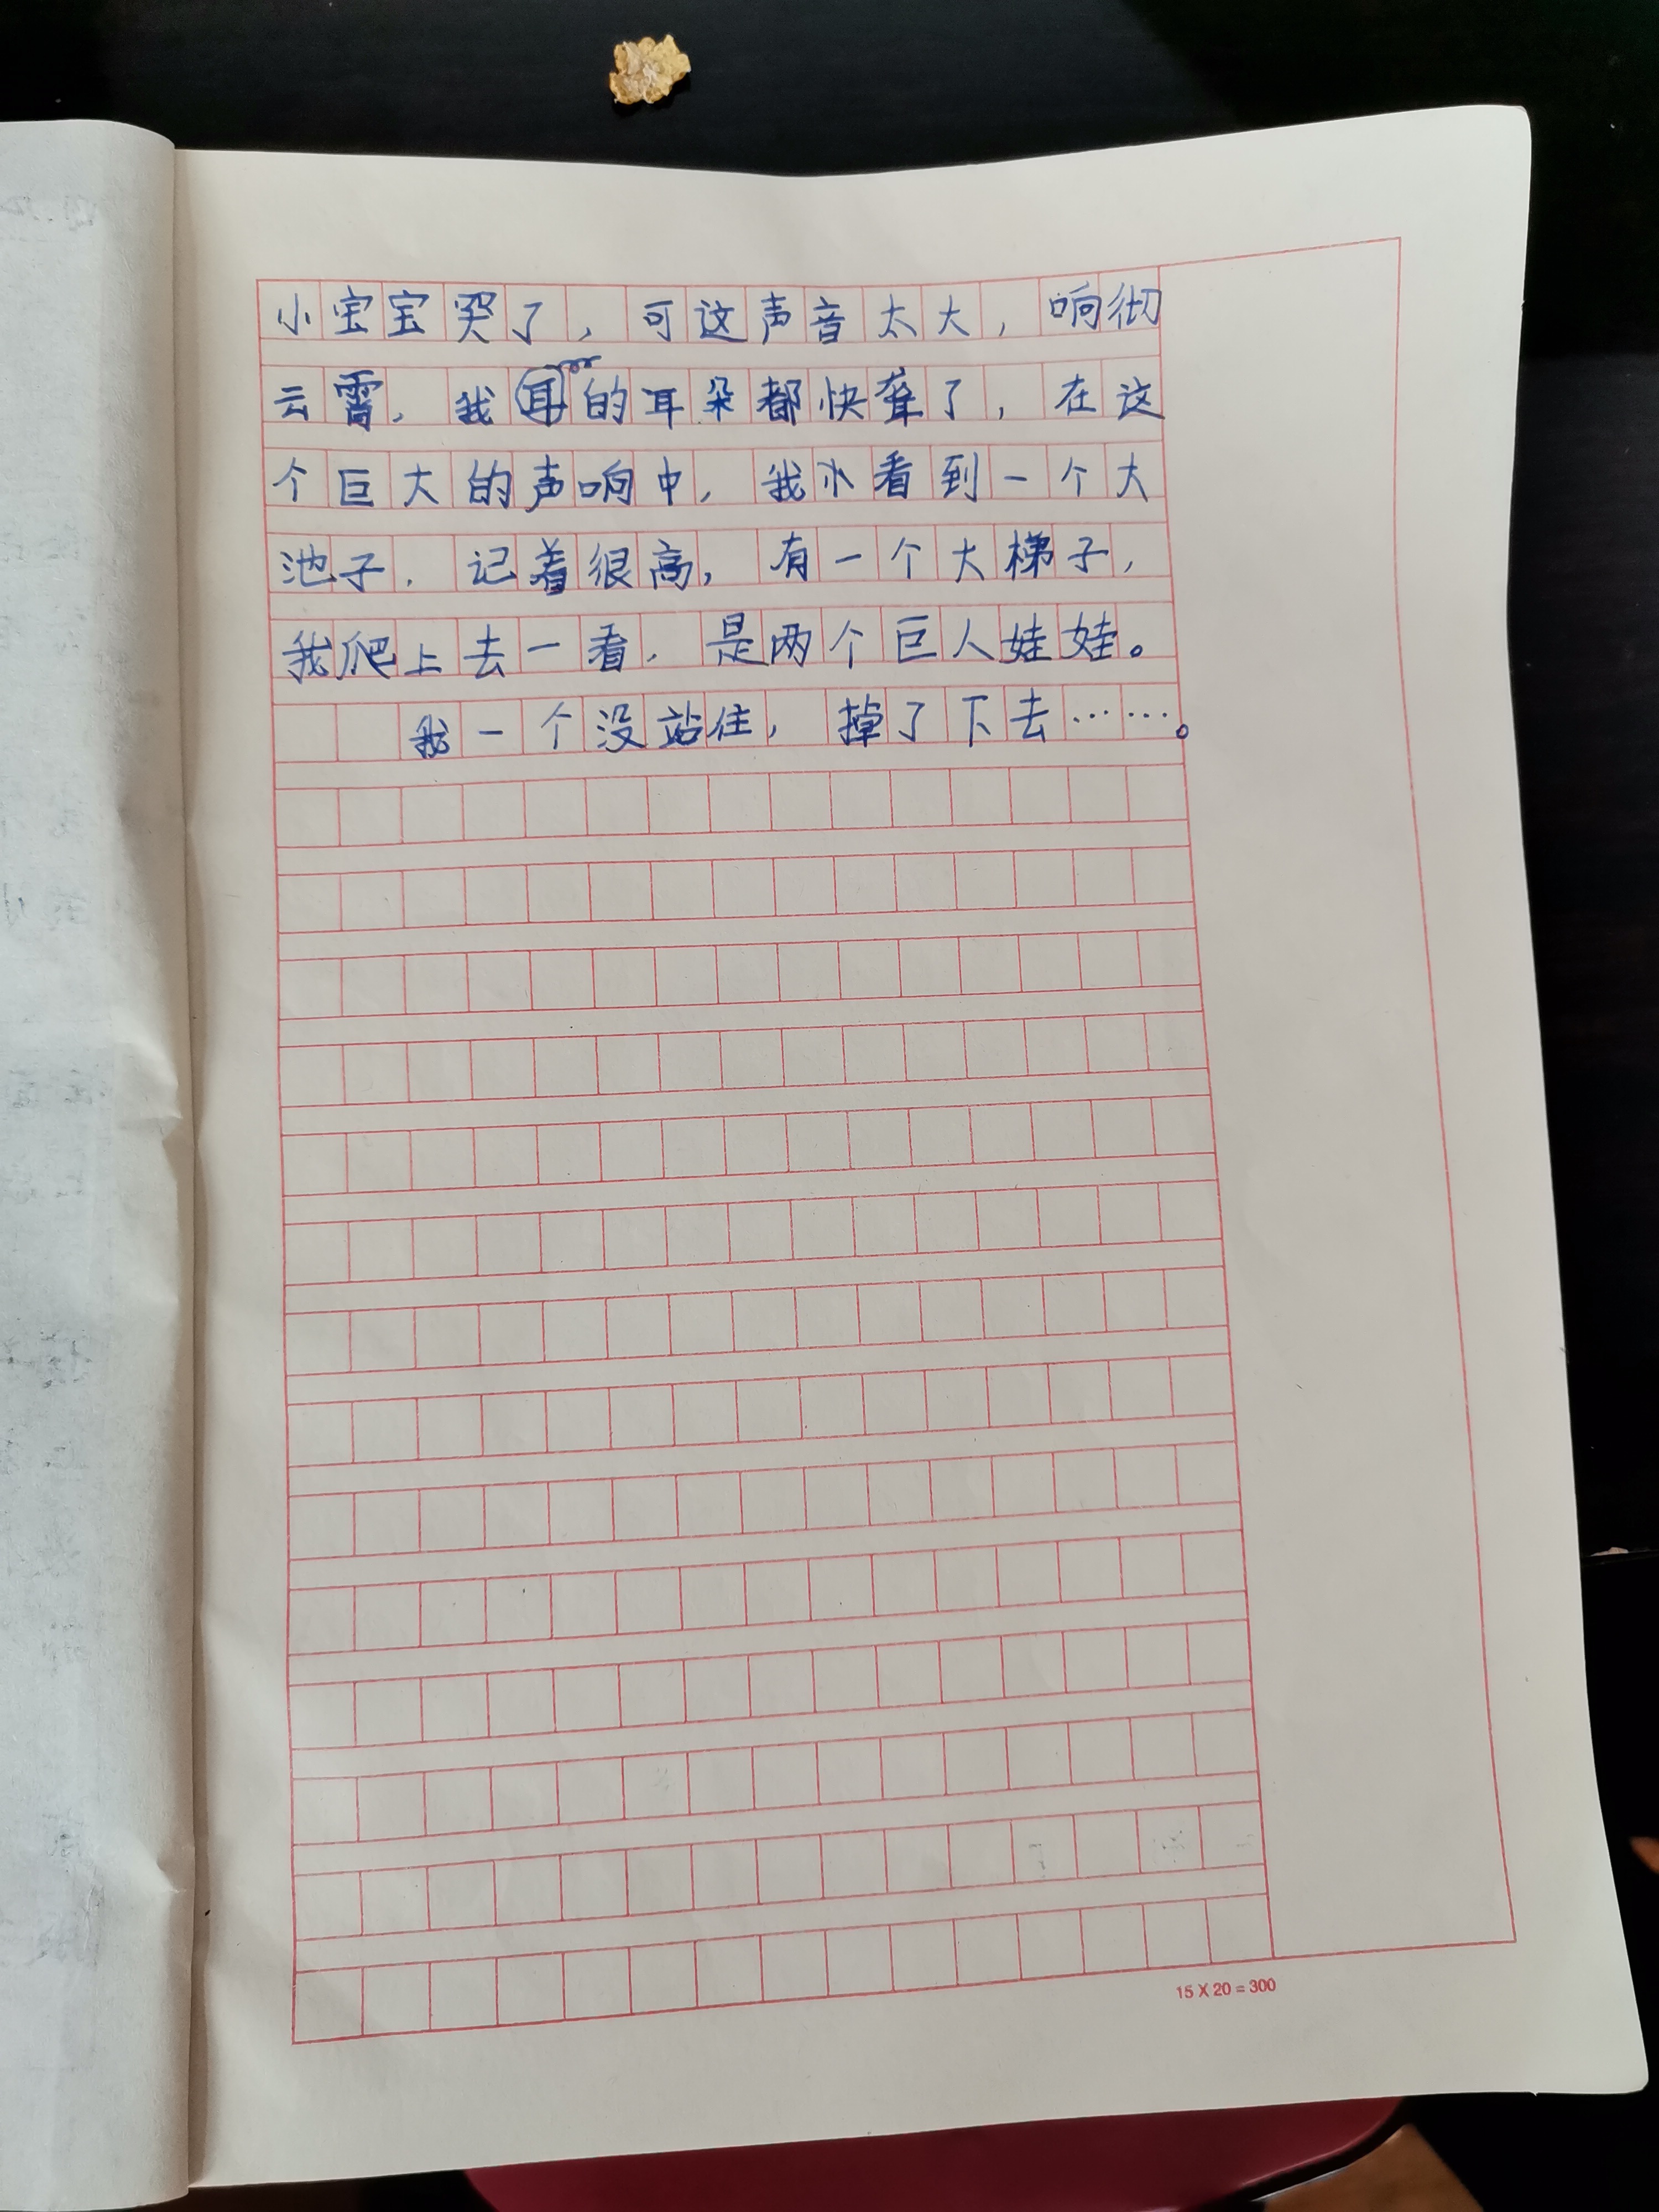 小宝宝哭了，可这声音太大，响彻
云霄，我的耳朵都快聋了，在这
个巨大的声响中，我小看到一个大
池子，记着很高，有一个大梯子，
我爬上去一看，是两个巨人娃娃。
我一个没站住，掉了下去……。
15 X 20 = 300